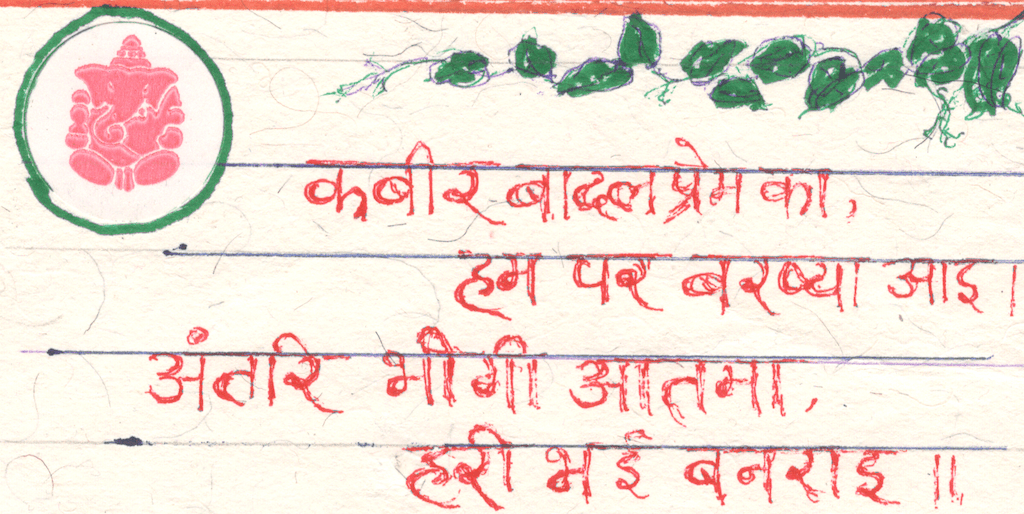 कबीर बादल प्रेम का,
हम पर बरष्या आइ।
अंतरि भीगी आतमा,
हरी भई बनराइ॥